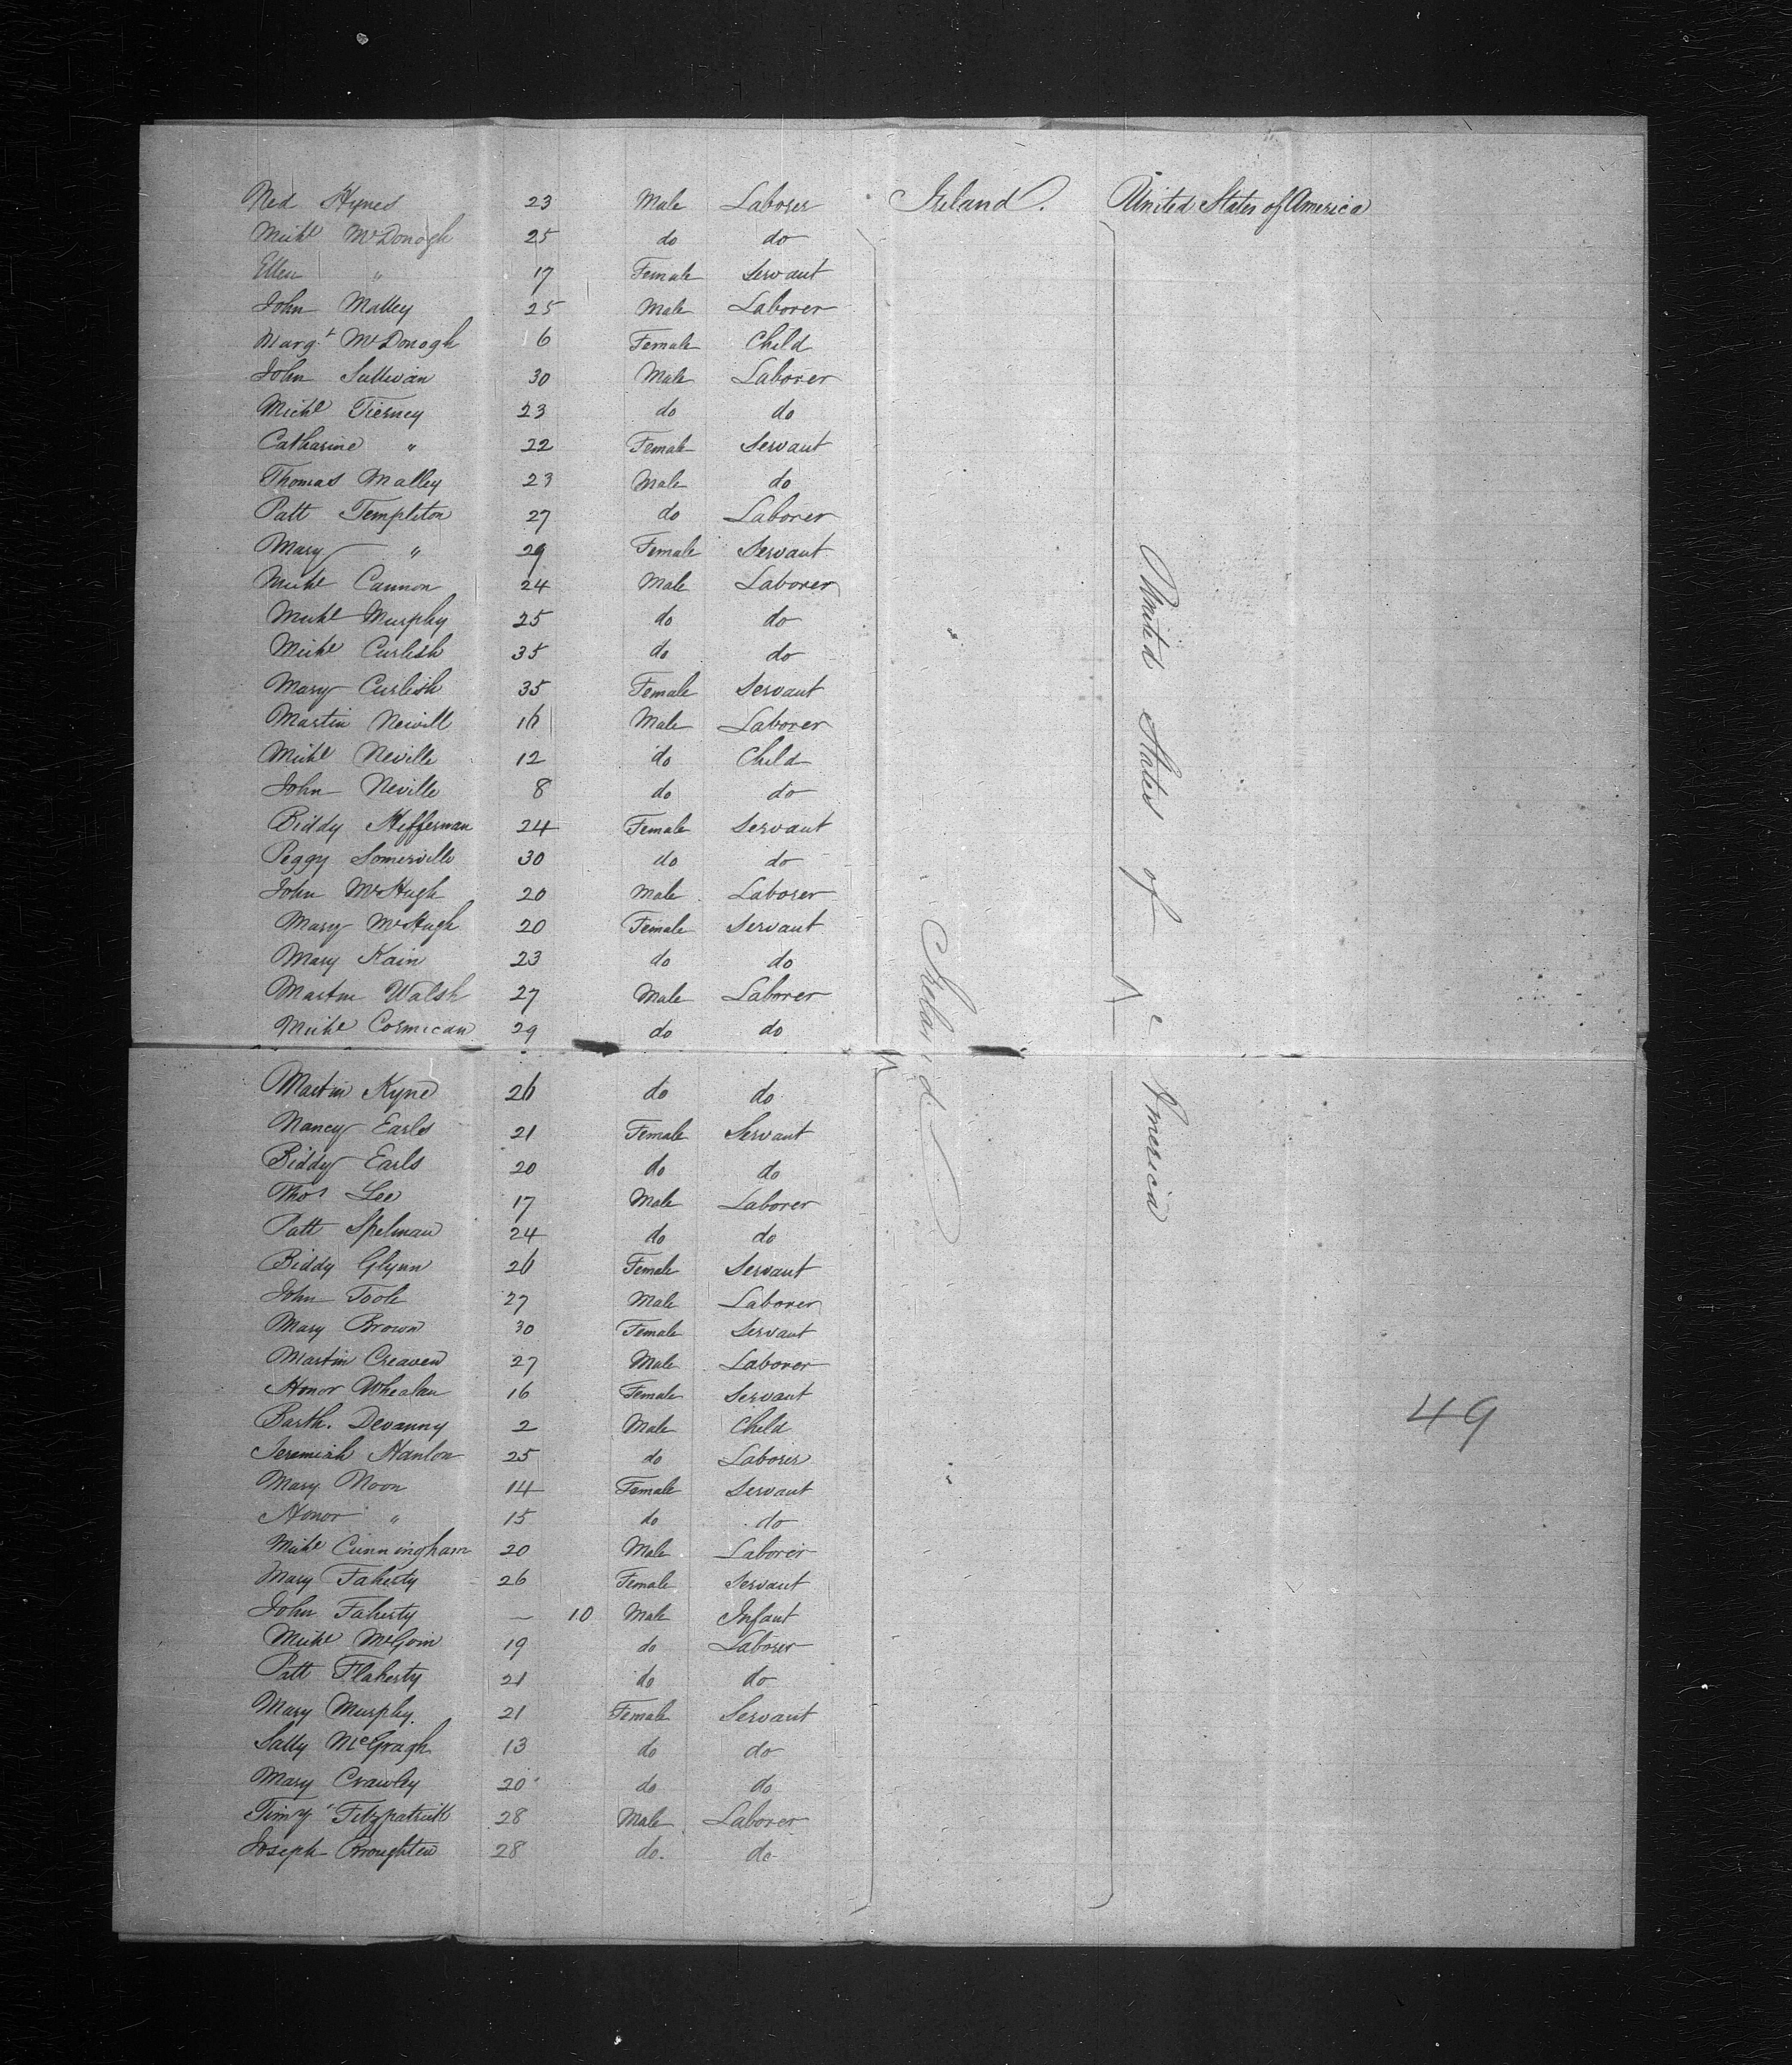 Ned Hynes 23 Male Laborer Ireland. United States of America
Michl McDonogh 25 do do
Ellen " 17 Female Servant
John Malley 25 Male Laborer
Margt McDonogh 6 Female Child
John Sullivan 30 Male Laborer
Michl Tierney 23 do do
Catharine " 22 Female Servant
Thomas Malley 23 Male do
Patt Templeton 27 do Laborer
Mary " 29 Female Servant
Michl Cannon 24 Male Laborer
Michl Murphy 25 do do
Michl Curlish 35 do do
Mary Curlish 35 Female Servant
Martin Nevill 16 Male Laborer
Michl Neville 12 do Child
John Neville 8 do do
Biddy Heffernan 24 Female Servant
Peggy Somerville 30 do do
John McHugh 20 Male Laborer
Mary McHugh 20 Female Servant
Mary Kain 23 do do
Martin Walsh 27 Male Laborer
Michl Cormican 29 do do
Martin Kyne 26 do do
Nancy Earls 21 Female Servant
Biddy Earls 20 do do
Thos Lee 17 Male Laborer
Patt Spelman 24 do do
Biddy Glynn 26 Female Servant
John Toole 27 Male Laborer
Mary Brown 30 Female Servant
Martin Creaven 27 Male Laborer
Honor Whealan 16 Female Servant
Barth. Devanny 2 Male Child
Jeremiah Hanlon 25 do Laborer
Mary Noon 14 Female Servant
Honor " 15 do do
Michl Cunningham 20 Male Laborer
Mary Faherty 26 Female Servant
John Faherty — 10 Male Infant
Michl McGoin 19 do Laborer
Patt Flaherty 21 do do
Mary Murphy. 21 Female Servant
Sally McGragh 13 do do
Mary Crawley 20 do do
Timy Fitzpatrick 28 Male Laborer
Joseph Broughton 28 do. do
Ireland
United States of America
49